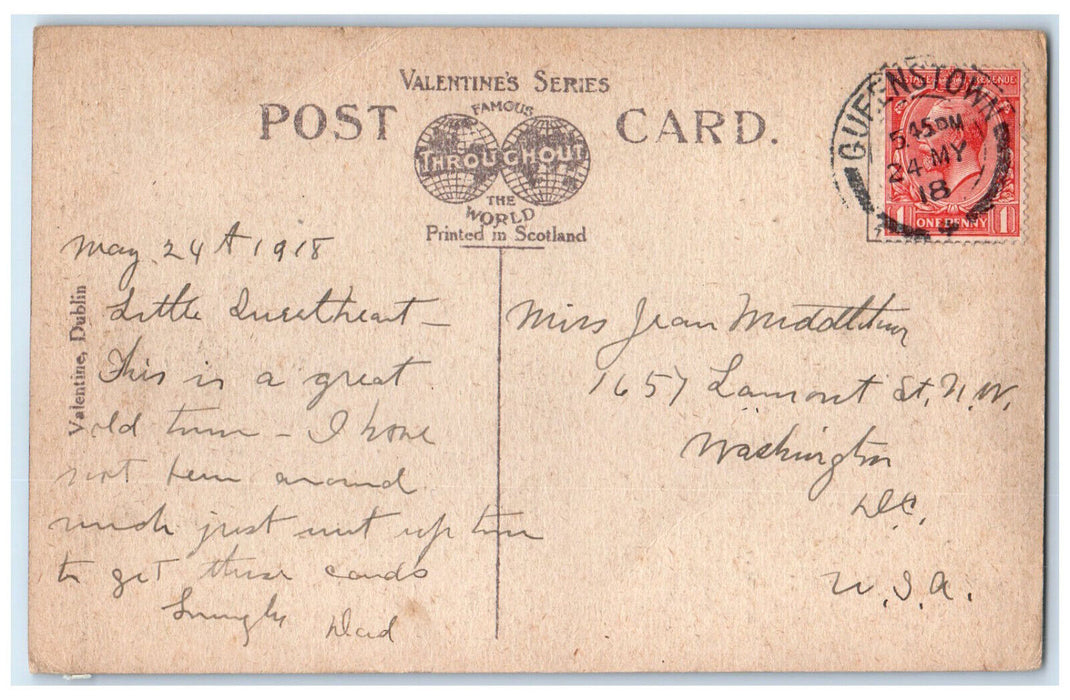 VALENTINE'S SERIES
POST CARD.
FAMOUS
THROUGHOUT
THE
WORLD
Printed in Scotland
QUEENSTOWN
5.45 PM
24 MY
18
POSTAGE REVENUE
1 ONE PENNY 1
Valentine, Dublin
May 24th 1918
Little Sweetheart –
This is a great
old town – I have
not been around
much just went up town
to get these cards
Dad
Miss Jean Middleton
1657 Lamont St. N.W.
Washington
D.C.
U.S.A.